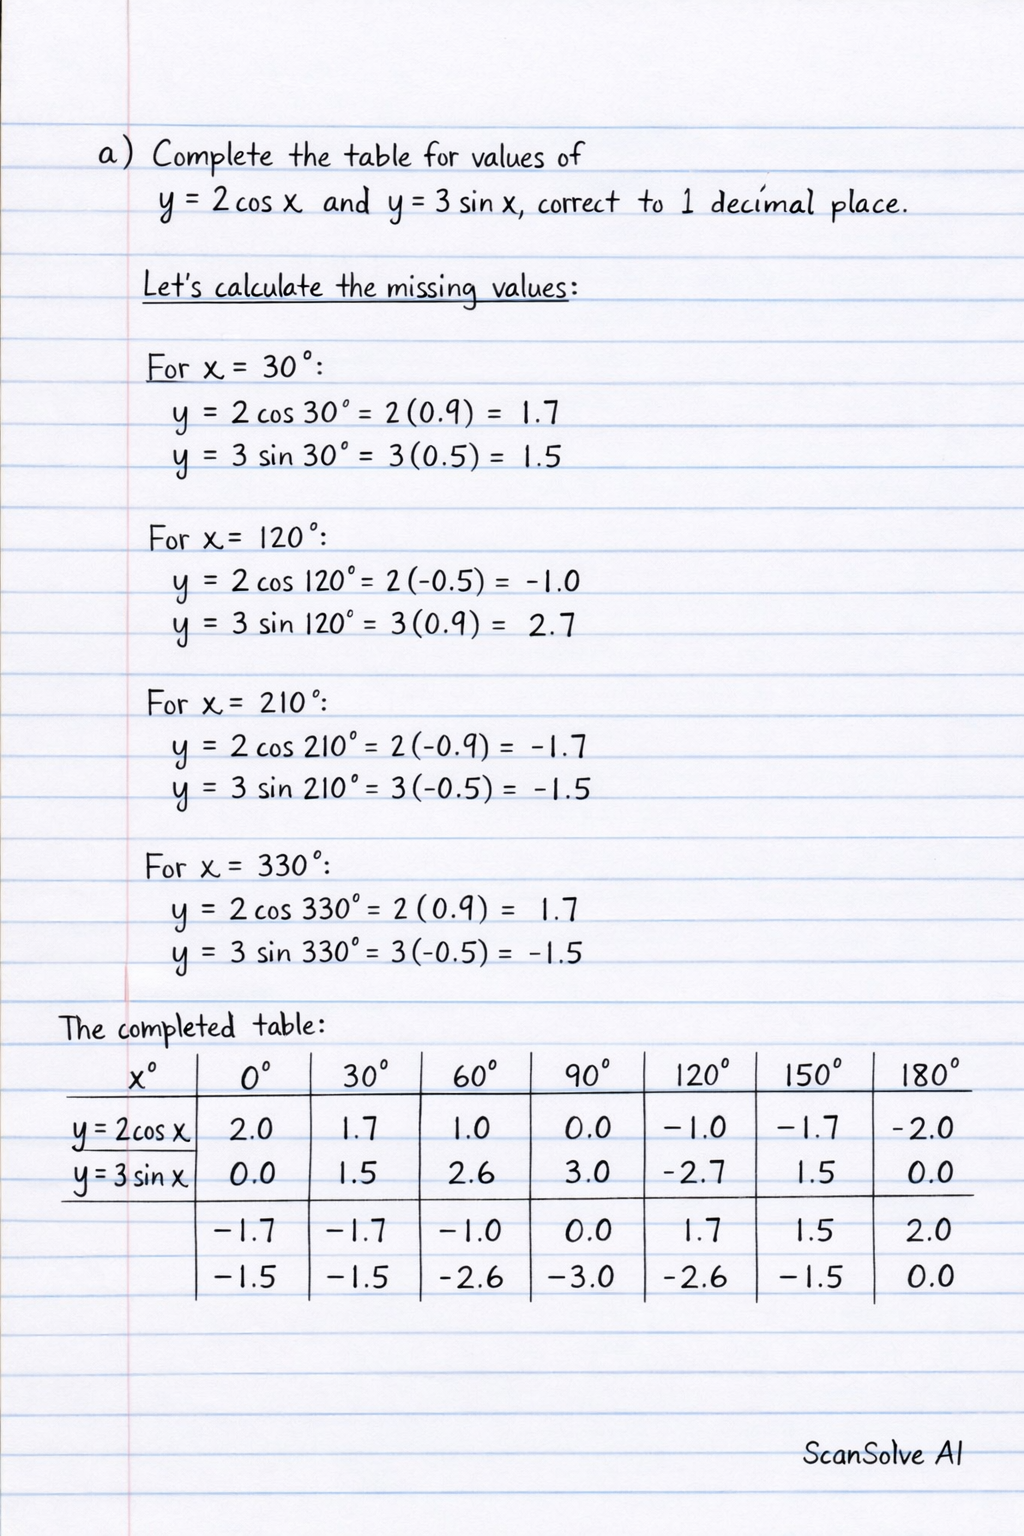 a) Complete the table for values of
y = 2 cos x and y = 3 sin x, correct to 1 decimal place.
Let's calculate the missing values:
For x = 30°:
y = 2 cos 30° = 2(0.9) = 1.7
y = 3 sin 30° = 3(0.5) = 1.5
For x = 120°:
y = 2 cos 120° = 2(-0.5) = -1.0
y = 3 sin 120° = 3(0.9) = 2.7
For x = 210°:
y = 2 cos 210° = 2(-0.9) = -1.7
y = 3 sin 210° = 3(-0.5) = -1.5
For x = 330°:
y = 2 cos 330° = 2(0.9) = 1.7
y = 3 sin 330° = 3(-0.5) = -1.5
The completed table:
x° 0° 30° 60° 90° 120° 150° 180°
y = 2cos x 2.0 1.7 1.0 0.0 -1.0 -1.7 -2.0
y = 3 sin x 0.0 1.5 2.6 3.0 -2.7 1.5 0.0
-1.7 -1.7 -1.0 0.0 1.7 1.5 2.0
-1.5 -1.5 -2.6 -3.0 -2.6 -1.5 0.0
ScanSolve AI